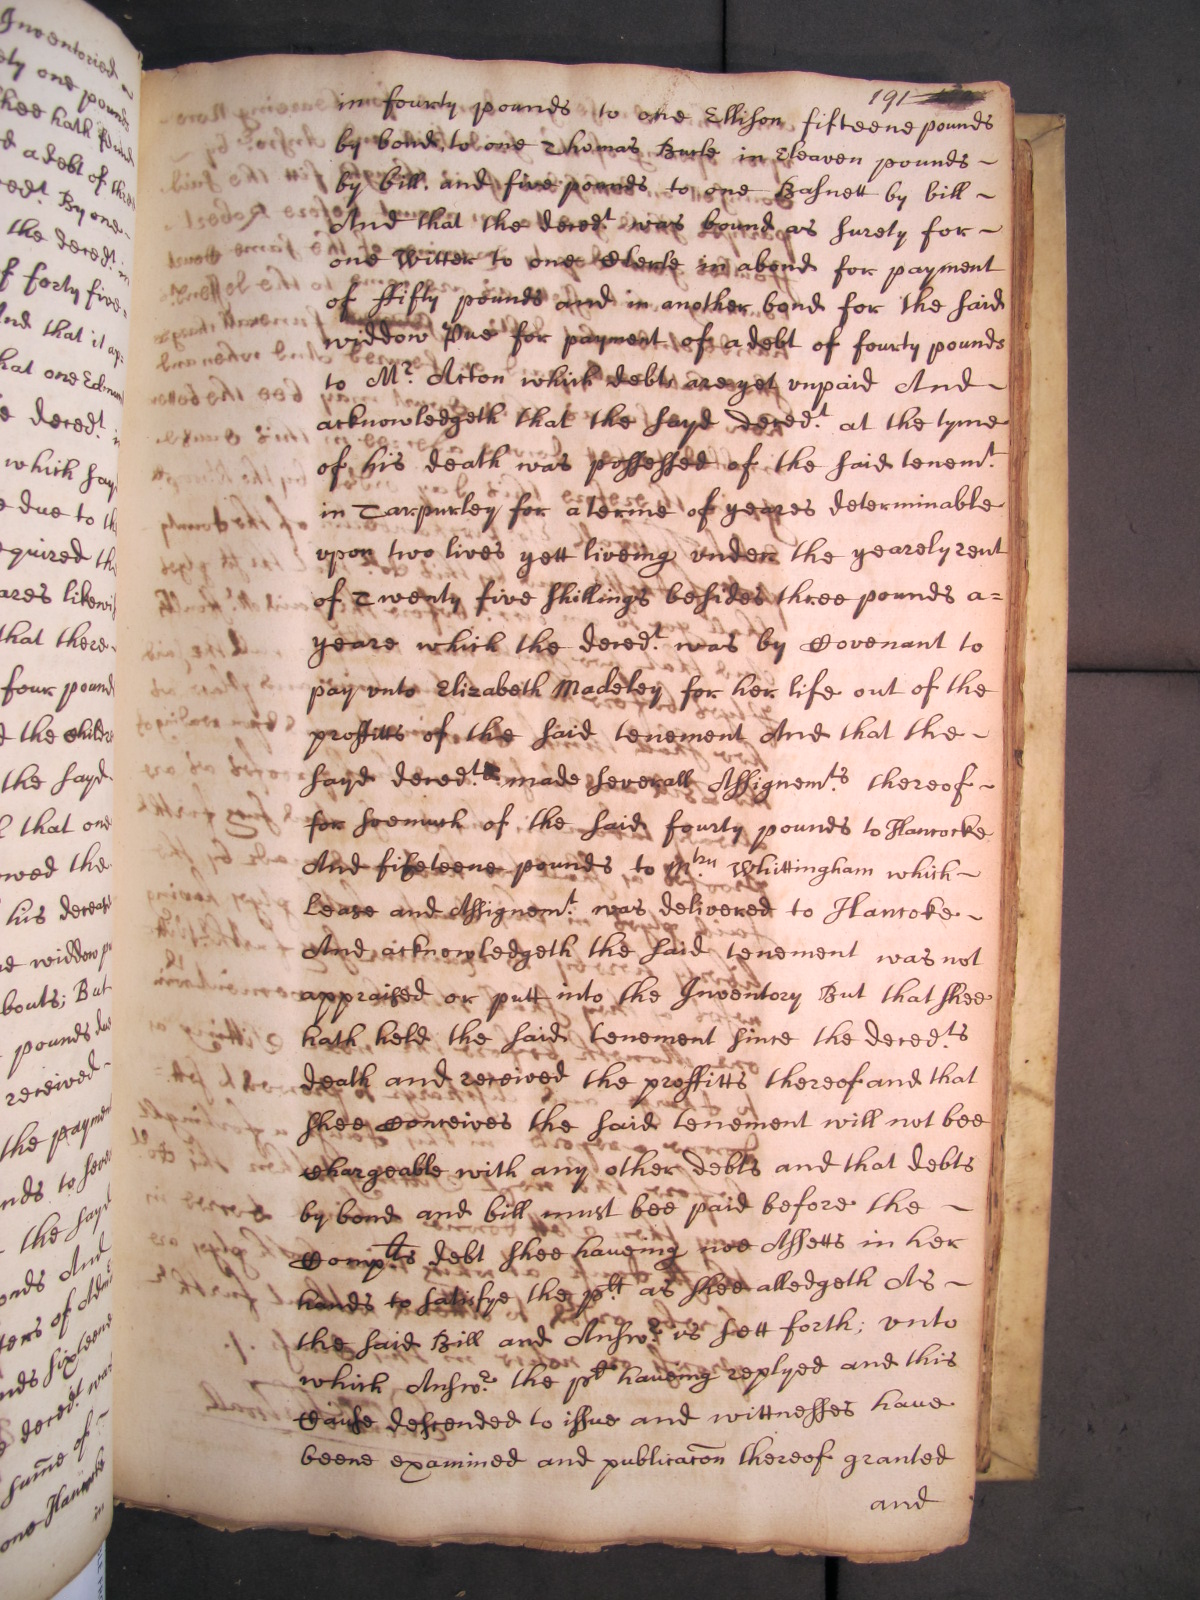 Inventoried
ety one pounds
shee hath
d a debt of three
ced.t By one
the deced.t in
f forty five
nd that it ap:
hat one Edm
e deced.t i
which say
e due to th
equired the
ares likewi
that there
four pound
d the childre
the sayd
that one
owed the
his deceas
widdow p
bouts; But
pounds due
received
the paymen
nds to seve
the sayd
onds And
ters of Adm
nds sixteene
deced.t was
same of
one Hancocke
in
191
in fourty pounds to one Ellison fifteene pounds
by bond, to one Thomas Burle in Eleaven pounds
by bill. and five pounds to one Basnett by bill
And that the deced.t was bound as surety for
one Witter to one Clerke in abond for payment
of ffifty pounds and in another bond for the said
widdow Pue for payment of a debt of fourty pounds
to M.r Acton which debts are yet vnpaid And
acknowledgeth that the sayd deced.t at the tyme
of his death was possessed of the said tenem.t
in Tarpurley for a terme of yeares determinable
vpon two lives yett liveing vnder the yearely rent
of Twenty five shillings besides three pounds a=
yeare which the deced.t was by Covenant to
pay vnto Elizabeth Madeley for her life out of the
proffitts of the said tenement And that the
sayd deced.t made severall Assignem.ts thereof
for soemuch of the said fourty pounds to Hancocke
And fifeteene pounds to Whittingham which
Lease and Assignem.t was delivered to Hancoke
And acknowledgeth the said tenement was not
appraised or putt into the Inventory But that shee
hath held the said tenement since the deced.ts
death and received the proffitts thereof and that
shee Conceives the said tenement will not bee
chargeable with any other debts and that debts
by bond and bill must bee paid before the
Comp.lts debt shee haueing noe Assetts in her
hands to satisfye the p.lt as shee alledgeth As
the said Bill and Answ.r is sett forth; vnto
which Answ.r the p.lt haueing replyed and this
Cause descended to issue and wittnesses haue
beene examined and publicac̃on thereof granted
and